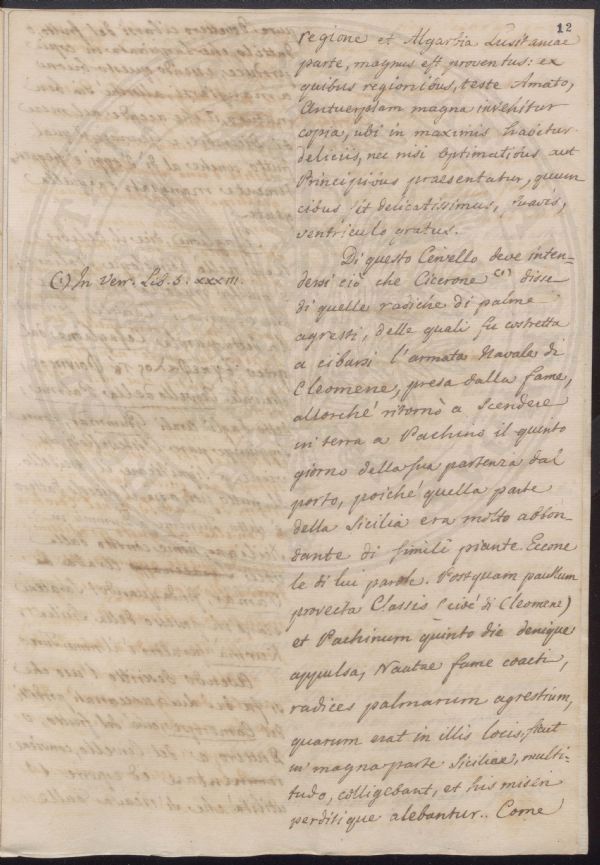 12
regione et Algarbia Lusitaniae
parte, magnus est proventus: ex
quibus regionibus, teste Amato,
Antuerpiam magna invehitur
copia, ubi in maximis habetur
deliciis, nec nisi Optimatibus aut
Principibus praesentatur, quum
cibus sit delicatissimus, suavis,
ventriculo gratus.
Di questo Cervello deve inten-
(1) In Verr. Lib. 5: XXXIII.
dersi ciò che Cicerone (1) disse
di quelle radiche di palme
agresti, delle quali fu costretta
a cibarsi l'armata Navale di
Cleomene, presa dalla fame,
allorché ritornò a scendere
in terra a Pachino il quinto
giorno della sua partenza dal
porto, poiché quella parte
della Sicilia era molto abbon-
dante di simili piante. Eccone
le di lui parole. Postquam paullum
provecta Classis (cioè di Cleomene)
et Pachinum quinto die denique
appulsa, Nautae fame coacti,
radices palmarum agrestium,
quarum erat in illis locis, sicut
in magna parte Siciliae, multi-
tudo, colligebant, et his miseri
perditique alebantur.. Come